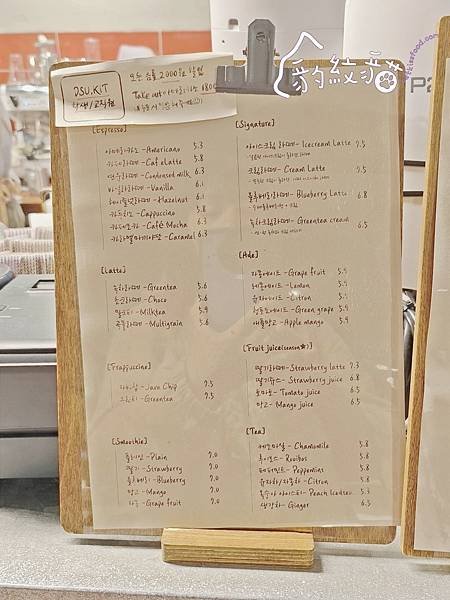 DSU.KIT
학생/교직원
모든 음료 2000원 할인
Take out
[Espresso]
아메리카노-Americano 5.3
카페라떼-Cafelatte 5.8
연유라떼-Condensed milk 6.3
바닐라라떼-Vanilla 6.1
헤이즐넛라떼-Hazelnut 6.1
카푸치노-Cappuccino 5.8
카페모카-Café Mocha 6.3
카라멜마끼아또-Caramel 6.3
[Latte]
녹차라떼-Greentea 5.6
초코라떼-Choco 5.6
밀크티-Milktea 5.9
곡물라떼-Multigrain 5.6
[Frappuccino]
자바칩-Java Chip 7.5
그린티-Greentea 7.5
[Smoothie]
플레인-Plain 7.0
딸기-Strawberry 7.0
블루베리-Blueberry 7.0
망고-Mango 7.0
자몽-Grape fruit 7.0
[Signature]
아이스크림라떼-Icecream Latte 7.5
크림라떼-Cream Latte 7.5
블루베리라떼-Blueberry Latte 6.8
녹차크림라떼-Greentea cream 6.5
[Ade]
자몽에이드-Grape fruit 5.9
레몬에이드-Lemon 5.9
유자에이드-Citron 5.9
청포도에이드-Green grape 5.9
애플망고-Apple mango 5.9
[Fruit juice(season★)]
딸기라떼-Strawberry latte 7.3
딸기쥬스-Strawberry juice 6.8
토마토-Tomato juice 6.5
망고-Mango juice 6.5
[Tea]
캐모마일-Chamomile 5.8
루이보스-Rooibos 5.8
페퍼민트-Peppermint 5.8
유자차/자몽차-Citron 5.8
복숭아 아이스티-Peach Icedtea 5.3
생강차-Ginger 6.5
豹紋貓